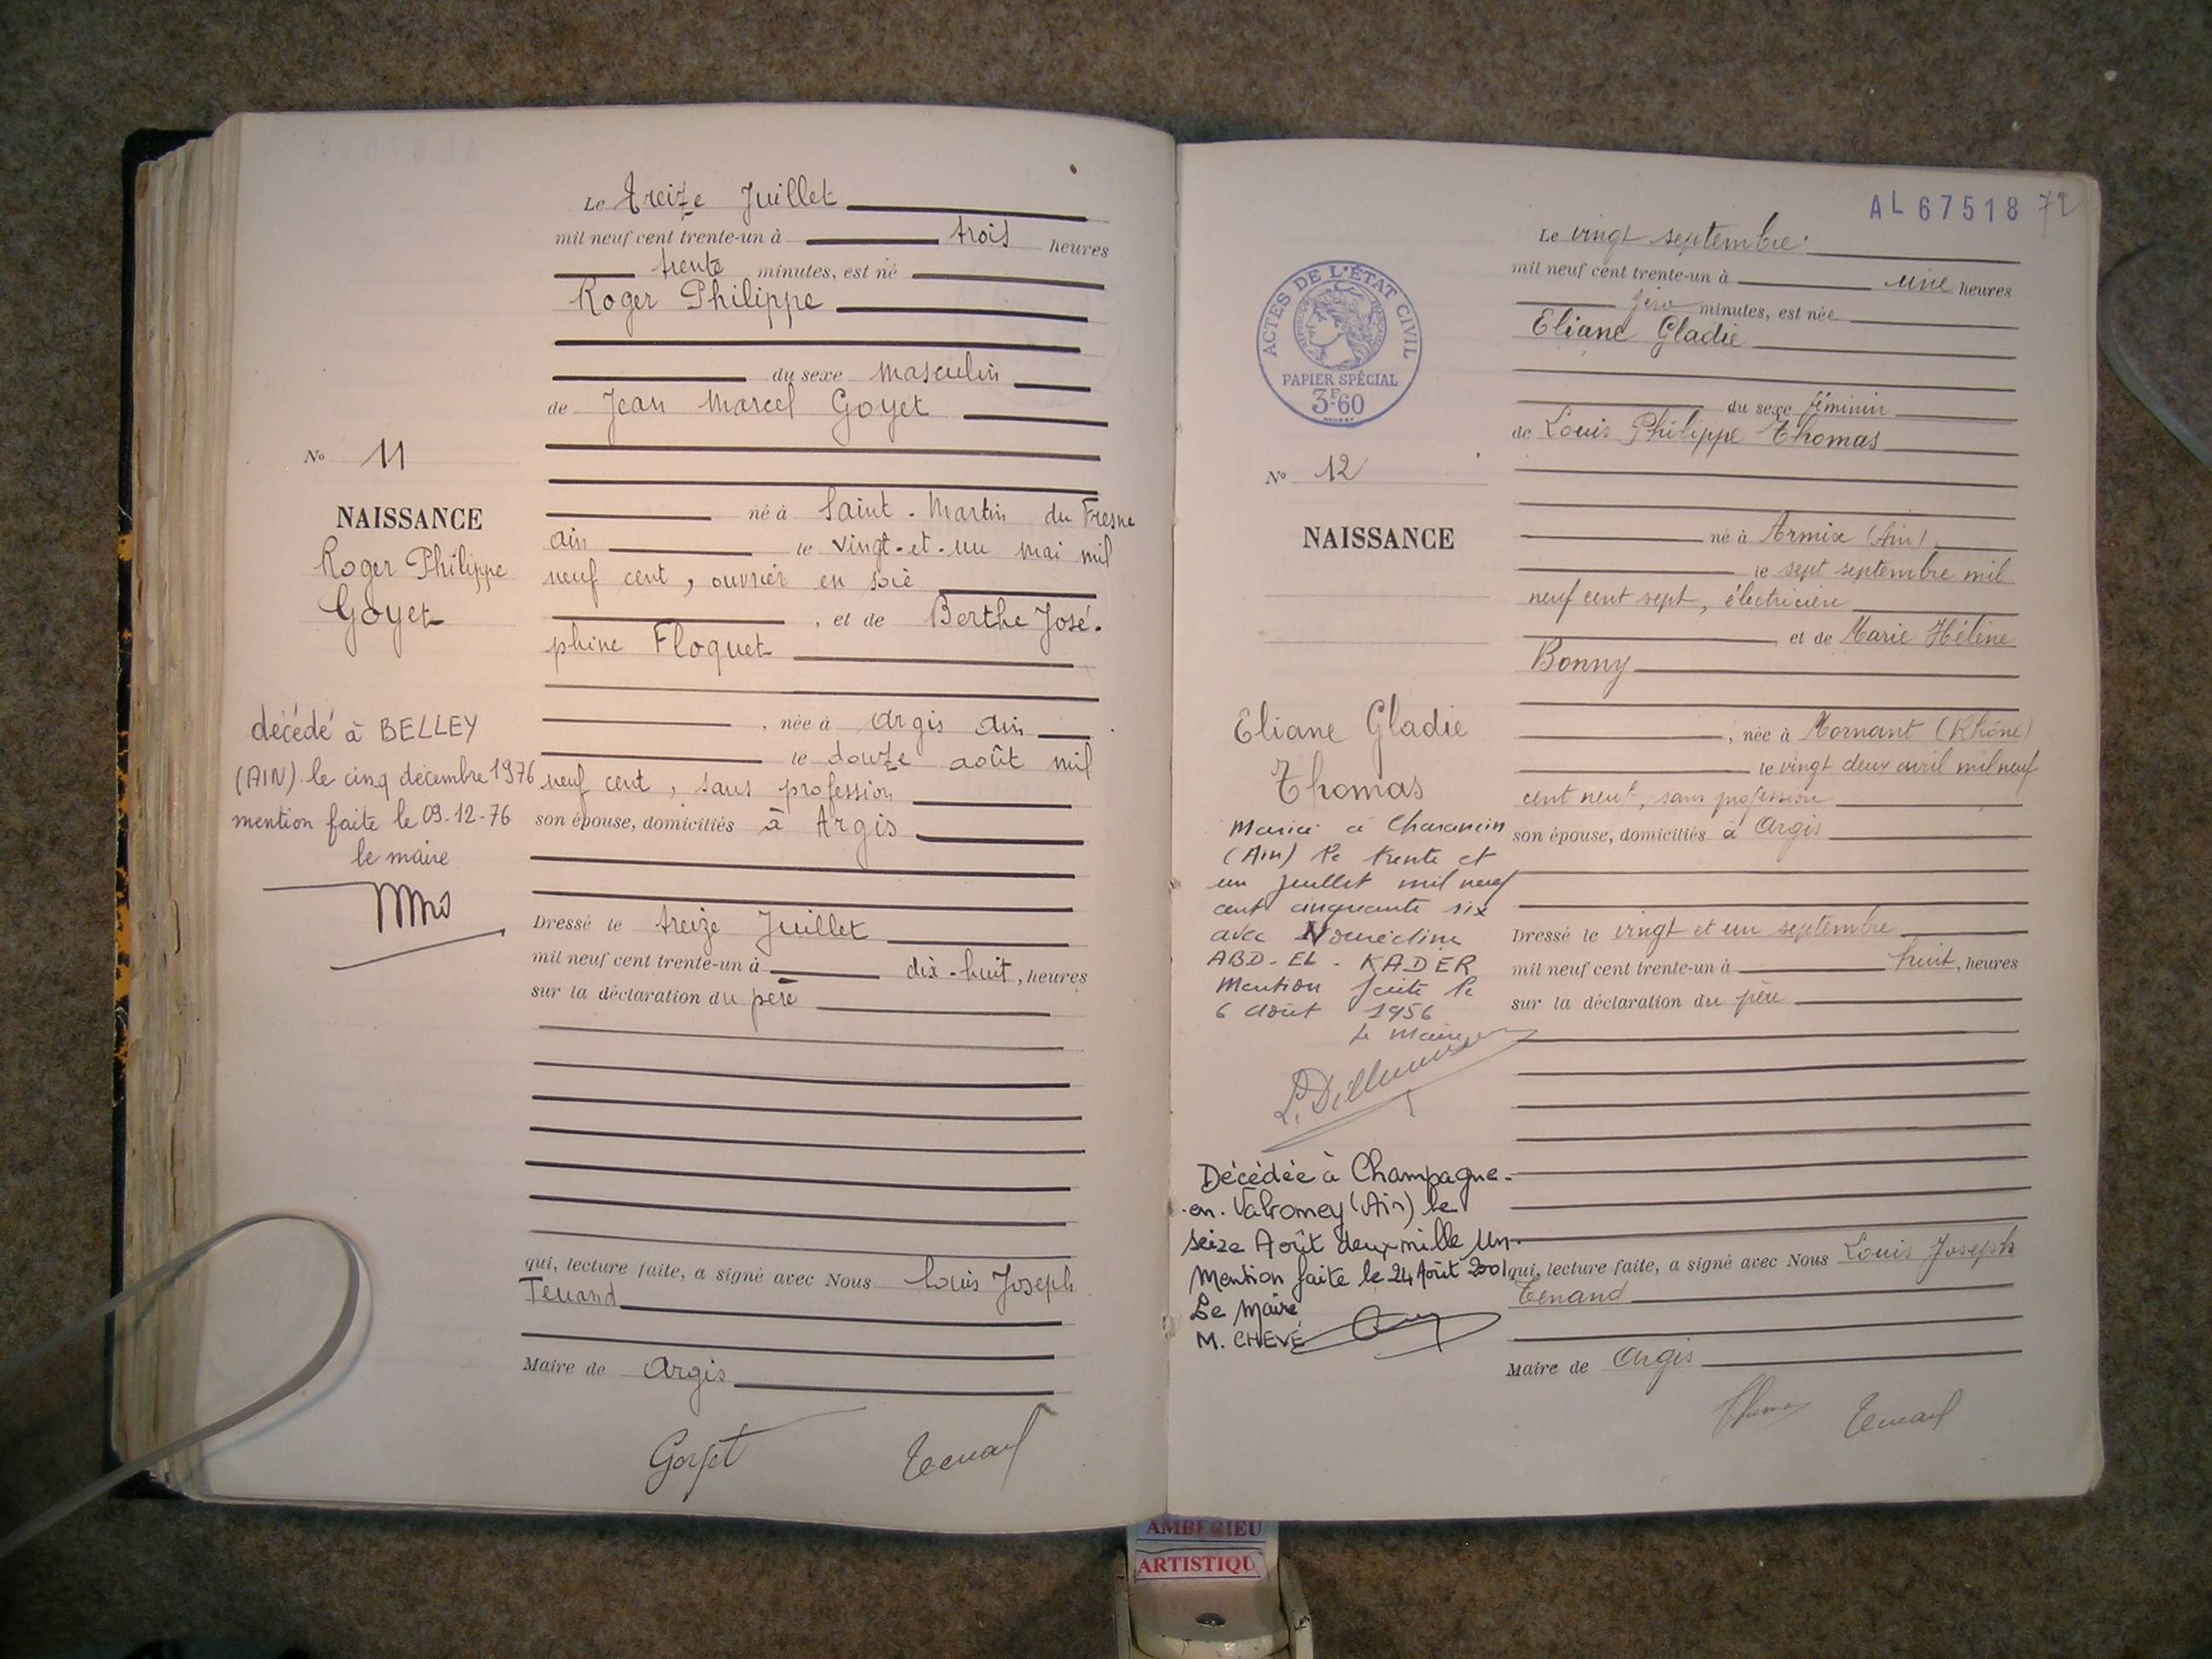 Le treize Juillet
mil neuf cent trente-un à trois heures
trente minutes, est né
Roger Philippe
du sexe masculin
de Jean Marcel Goyet
né à Saint-Martin du Fresne
ain le vingt-et-un mai mil
neuf cent, ouvrier en soie
, et de Berthe José-
phine Floquet
, née à Argis Ain
le douze août mil
neuf cent, sans profession
son épouse, domiciliés à Argis
Dressé le treize Juillet
mil neuf cent trente-un à dix-huit, heures
sur la déclaration du père
qui, lecture faite, a signé avec Nous Louis Joseph
Tenand
Maire de Argis
Goyet Tenand
No 11
NAISSANCE
Roger Philippe
Goyet
décédé à BELLEY
(AIN) le cinq décembre 1976
mention faite le 09-12-76
le maire
AL 67518 72
ACTES DE L'ÉTAT CIVIL
PAPIER SPÉCIAL
3F60
No 12
NAISSANCE
Eliane Gladie
Thomas
Mariée à Charancin
(Ain) le trente et
un juillet mil neuf
cent cinquante six
avec Nourécline
ABD-EL-KADER
Mention faite le
6 août 1956
Le Maire
Décédée à Champagne-
en-Valromey (Ain) le
seize Août deux mille Un.
Mention faite le 24 Août 2001
Le Maire
M. CHEVÉ
Le vingt septembre
mil neuf cent trente-un à une heures
zéro minutes, est née
Eliane Gladie
du sexe féminin
de Louis Philippe Thomas
né à Armix (Ain)
le sept septembre mil
neuf cent sept, électricien
et de Marie Hélène
Bonny
, née à Mornant (Rhône)
le vingt deux avril mil neuf
cent neuf, sans profession
son épouse, domiciliés à Argis
Dressé le vingt et un septembre
mil neuf cent trente-un à huit, heures
sur la déclaration du père
qui, lecture faite, a signé avec Nous Louis Joseph
Tenand
Maire de Argis
Thomas Tenand
AMBERIEU
ARTISTIQU